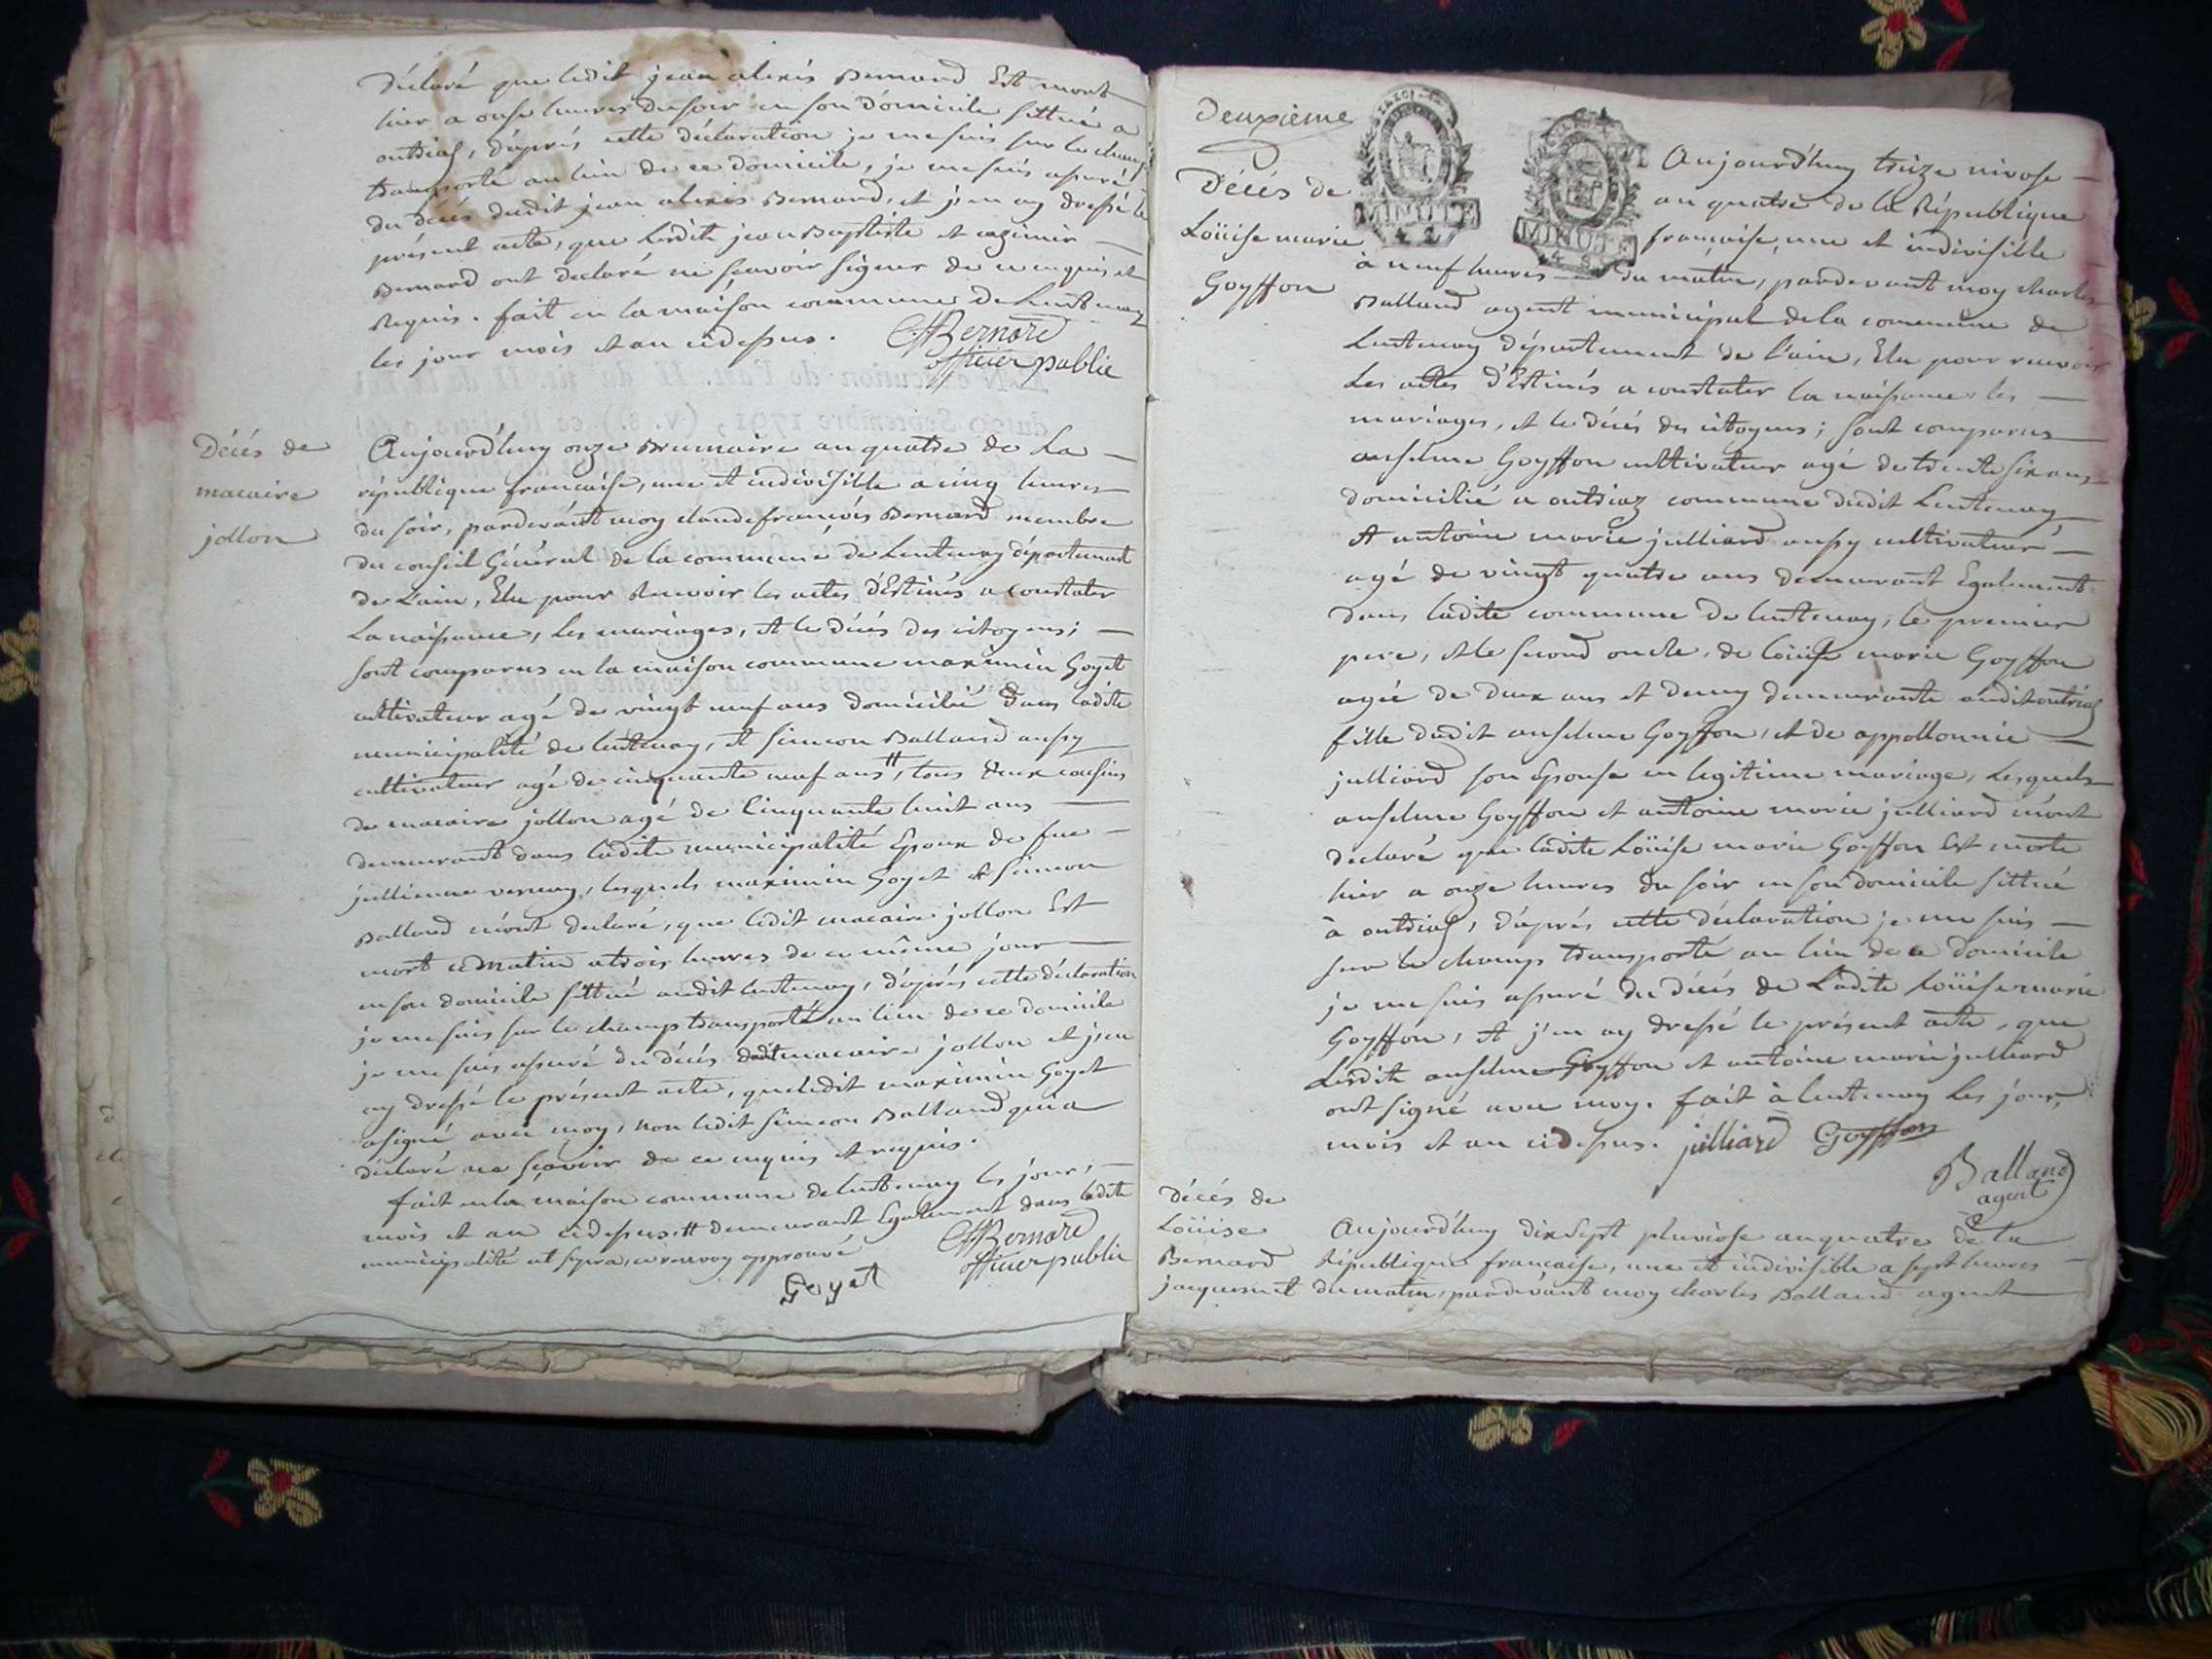 déclaré que ledit jean alexis Bernard Est mort
hier a onse heures du soir en son domicile sittué a
outrias, d'aprés cette déclaration je me suis sur le champ
transporté au lieu de ce domicile, je me suis assuré
du décés dudit jean alexis Bernard, et j'en ay dressé le
présent acte, que lesdits jean Baptiste et cazimir
Bernard ont declaré ne sçavoir signer de ce enquis et
Requis. fait en la maison commune de Lentenay
les jour mois et an cidessus. Bernard
officier public
Décés de
macaire
jollon
Aujourd'huy onze Brumaire an quatre de La
république francaise, une et indivisible a cinq heures
du soir, pardevant moy claude françois Bernard membre
du conseil Général de la commune de Lentenay département
de L'ain, Elu pour Recevoir les actes d'Estinés a constater
La naissance, les mariages, et le décés des citoyens;
sont comparus en la maison commune maximin Goyet
cultivateur agé de vingt neuf ans domicilié dans ladite
municipalité de lentenay, et simeon Balland aussy
cultivateur agé de cinquante neuf ans #, tous deux cousins
de macaire jollon agé de Cinquante huit ans
demeurant dans ladite municipalité Epoux de fue
jullienne vernay, lesquels maximin Goyet et simeon
Balland m'ont declaré, que ledit macaire jollon Est
mort ce matin a trois heures de ce même jour
en son domicile sittué audit lentenay, d'aprés cette déclaration
je me suis sur le champ transporté au lieu de ce domicile
je me suis assuré du décés dudit macaire jollon et j'en
ay dressé le présent acte, que ledit maximin Goyet
a signé avec moy, non ledit simeon Balland qui a
déclaré ne sçavoir de ce enquis et requis.
fait en la maison commune de lentenay les jour,
mois et an cidessus. # demeurant Egalement dans ladite
municipalité ut supra, ce renvoy approuvé
Bernard
officier public
Goyet
Deuxième
MINUTE
MINUTE
Décés de
Loüise marie
Goyffon
Aujourd'huy treize nivose
an quatre de la République
française, une et indivisible
à neuf heures du matin, pardevant moy charles
Balland agent municipal de la commune de
Lentenay département de l'ain, Elu pour recevoir
Les actes d'Estinés a constater la naissance, les
mariages, et le décés des citoyens; sont comparus
anselme Goyffon cultivateur agé de trente six ans,
domicilié a outriaz commune dudit Lentenay
et antoine marie julliard aussy cultivateur
agé de vingt quatre ans demeurant Egalement
dans ladite commune de lentenay, le premier
pere, et le second oncle, de loüise marie Goyffon
agée de deux ans et demy demeurante audit outrias
fille dudit anselme Goyffon, et de appollonnie
julliard son Epouse en legitime mariage, Lesquels
anselme Goyffon et antoine marie julliard m'ont
declaré que ladite Loüise marie Goyffon Est morte
hier a onze heures du soir en son domicile sittué
à outrias, d'aprés cette déclaration je me suis
sur le champ transporté au lieu de ce domicile
je me suis assuré du décés de Ladite loüise marie
Goyffon, et j'en ay dressé le présent acte, que
Lesdits anselme Goyffon et antoine marie julliard
ont signé avec moy. fait à lentenay les jour,
mois et an cidessus. julliard Goyffon
Balland
agent
Décés de
Loüise
Bernard
jacquemet
Aujourd'huy dix sept pluviose an quatre de la
République francaise, une et indivisible a sept heures
du matin, pardevant moy charles Balland agent